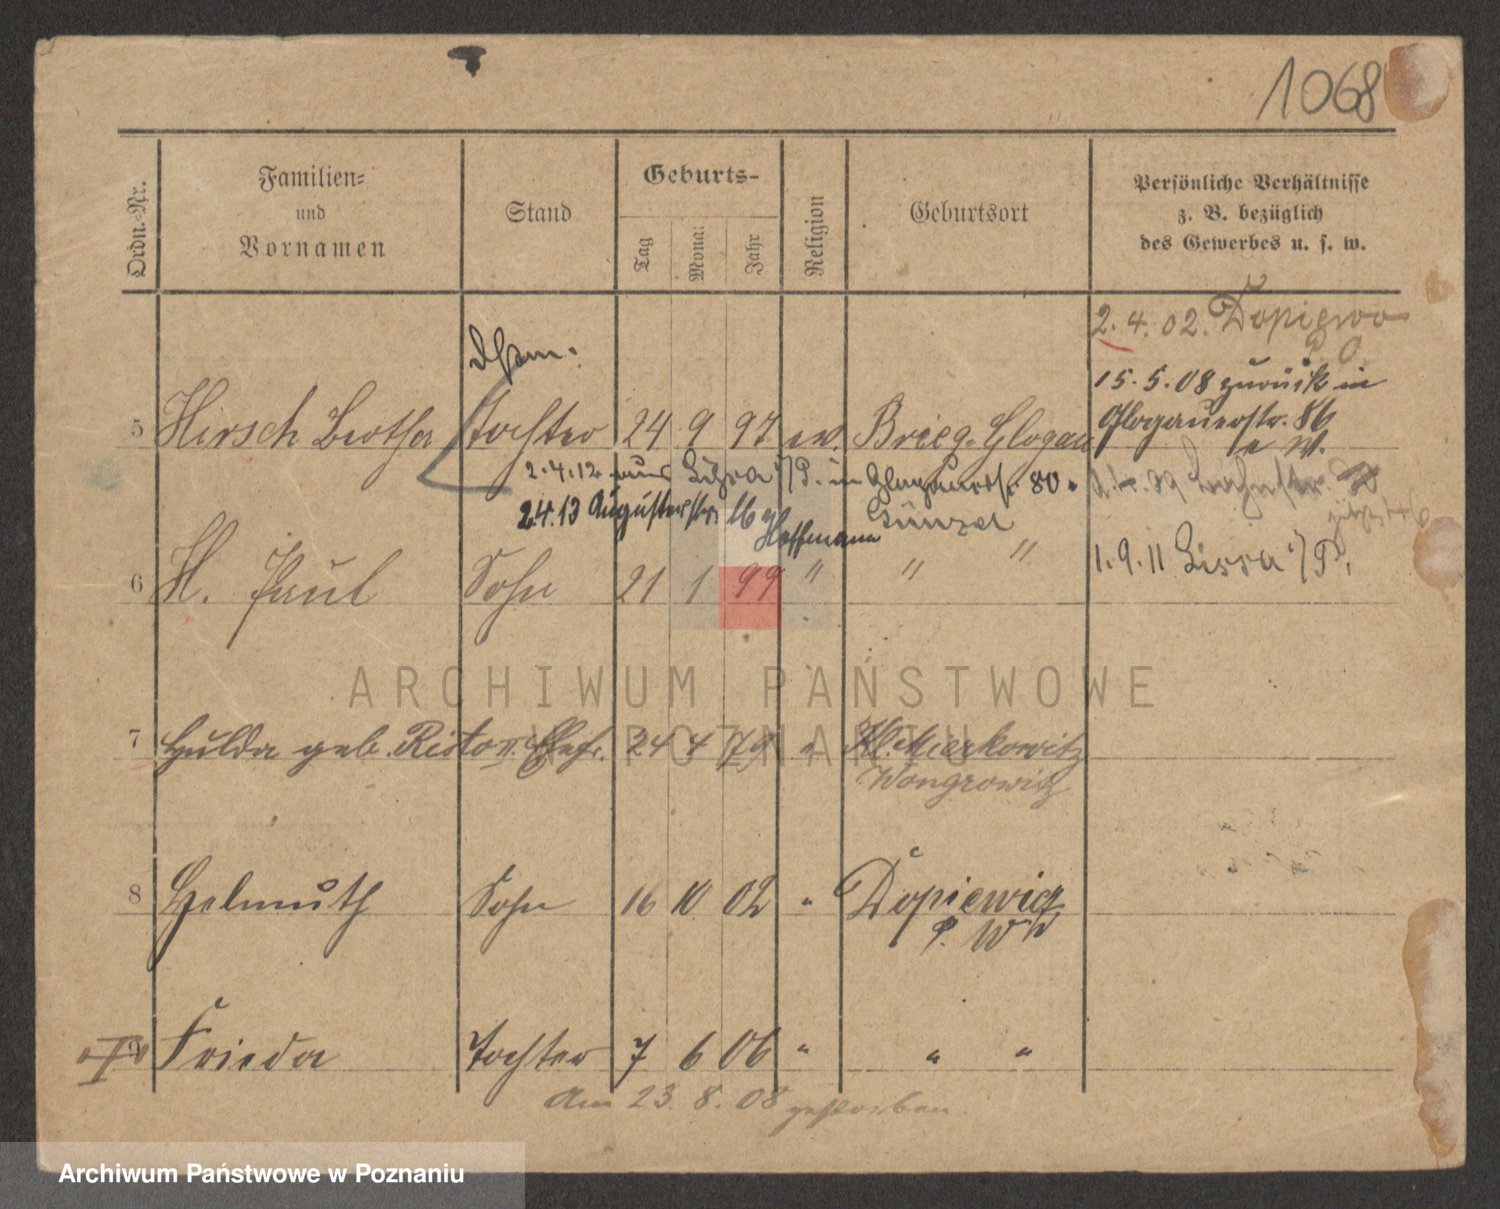 1068
Ordn.-Nr.
Familien-
und
Vornamen
Stand
Geburts-
Tag
Monat
Jahr
Religion
Geburtsort
Persönliche Verhältnisse
z. B. bezüglich
des Gewerbes u. s. w.
2. 4. 02. Dopiewo
15. 5. 08 zurück in
Glogauerstr. 86
5 Hirsch Bertha Tochter 24 9 97 ev. Brieg. Glogau
2.4.12 aus Lissa i/P. in Glogauerstr. 80.
24.13 Augustastr. 16 Günzel
Hoffmann
6 H. Paul Sohn 21 1 99 " " "
1. 9. 11 Lissa i/P.
7 Hulda geb. Ristow Ehefr. 24 4 79 " Kl. Markowitz
Wongrowitz
8 Helmuth Sohn 16 10 02 " Dopiewiec
P. W
9 Frieda Tochter 7 6 06 " " "
Am 23. 8. 08 gestorben
ARCHIWUM PAŃSTWOWE
W POZNANIU
Archiwum Państwowe w Poznaniu